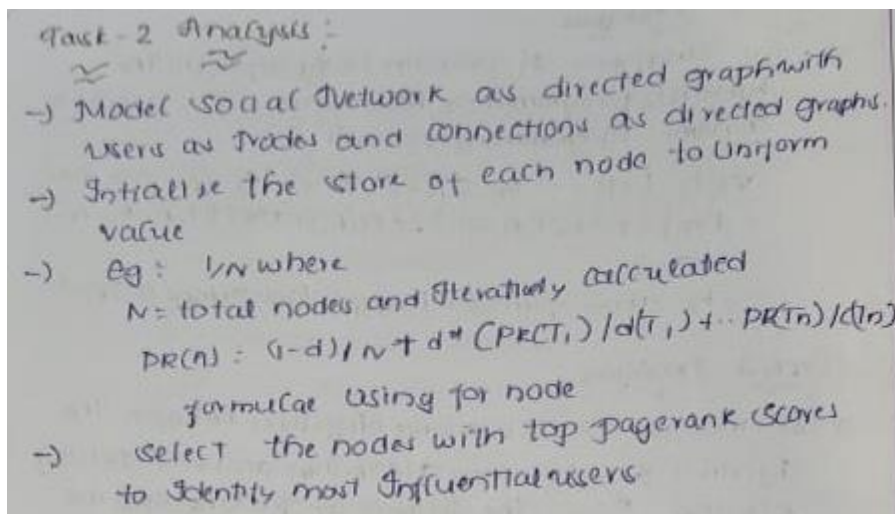 Task - 2 Analysis :
-> Model social Network as directed graph with
users as Nodes and connections as directed graphs.
-> Intialise the store of each node to Uniform
value
-> eg : 1/N where
N = total nodes and Iteratively calculated
PR(n) : (1-d)/N + d* (PR(T1)/d(T1) + .. PR(Tn)/d(Tn)
formulae using for node
-> select the nodes with top pagerank scores
to Identify most Influential users.